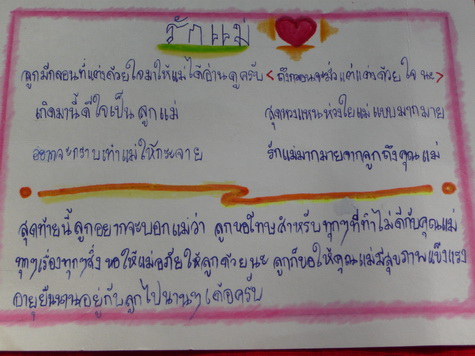 รักแม่
ลูกมีกลอนที่แต่งด้วยใจมาให้แม่ได้อ่านดูครับ <ถึงกลอนจะมั่วแต่แต่งด้วยใจ นะ>
เกิดมานี้ดีใจเป็นลูกแม่ สุดหวงแหนห่วงใยแม่แบบมากมาย
อยากจะกราบเท้าแม่ให้กระจาย รักแม่มากมายจากลูกถึงคุณแม่
สุดท้ายนี้ลูกอยากจะบอกแม่ว่า ลูกขอโทษสำหรับทุกๆที่ทำไม่ดีกับคุณแม่
ทุกๆเรื่องทุกๆสิ่ง ขอให้แม่อภัยให้ลูกด้วยนะ ลูกก็ขอให้คุณแม่มีสุขภาพแข็งแรง
อายุยืนนานอยู่กับลูกไปนานๆเด้อครับ